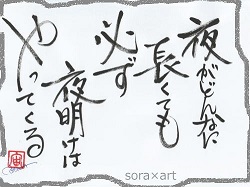 夜がどんなに
長くても
必ず
夜明けは
やってくる
sora×art